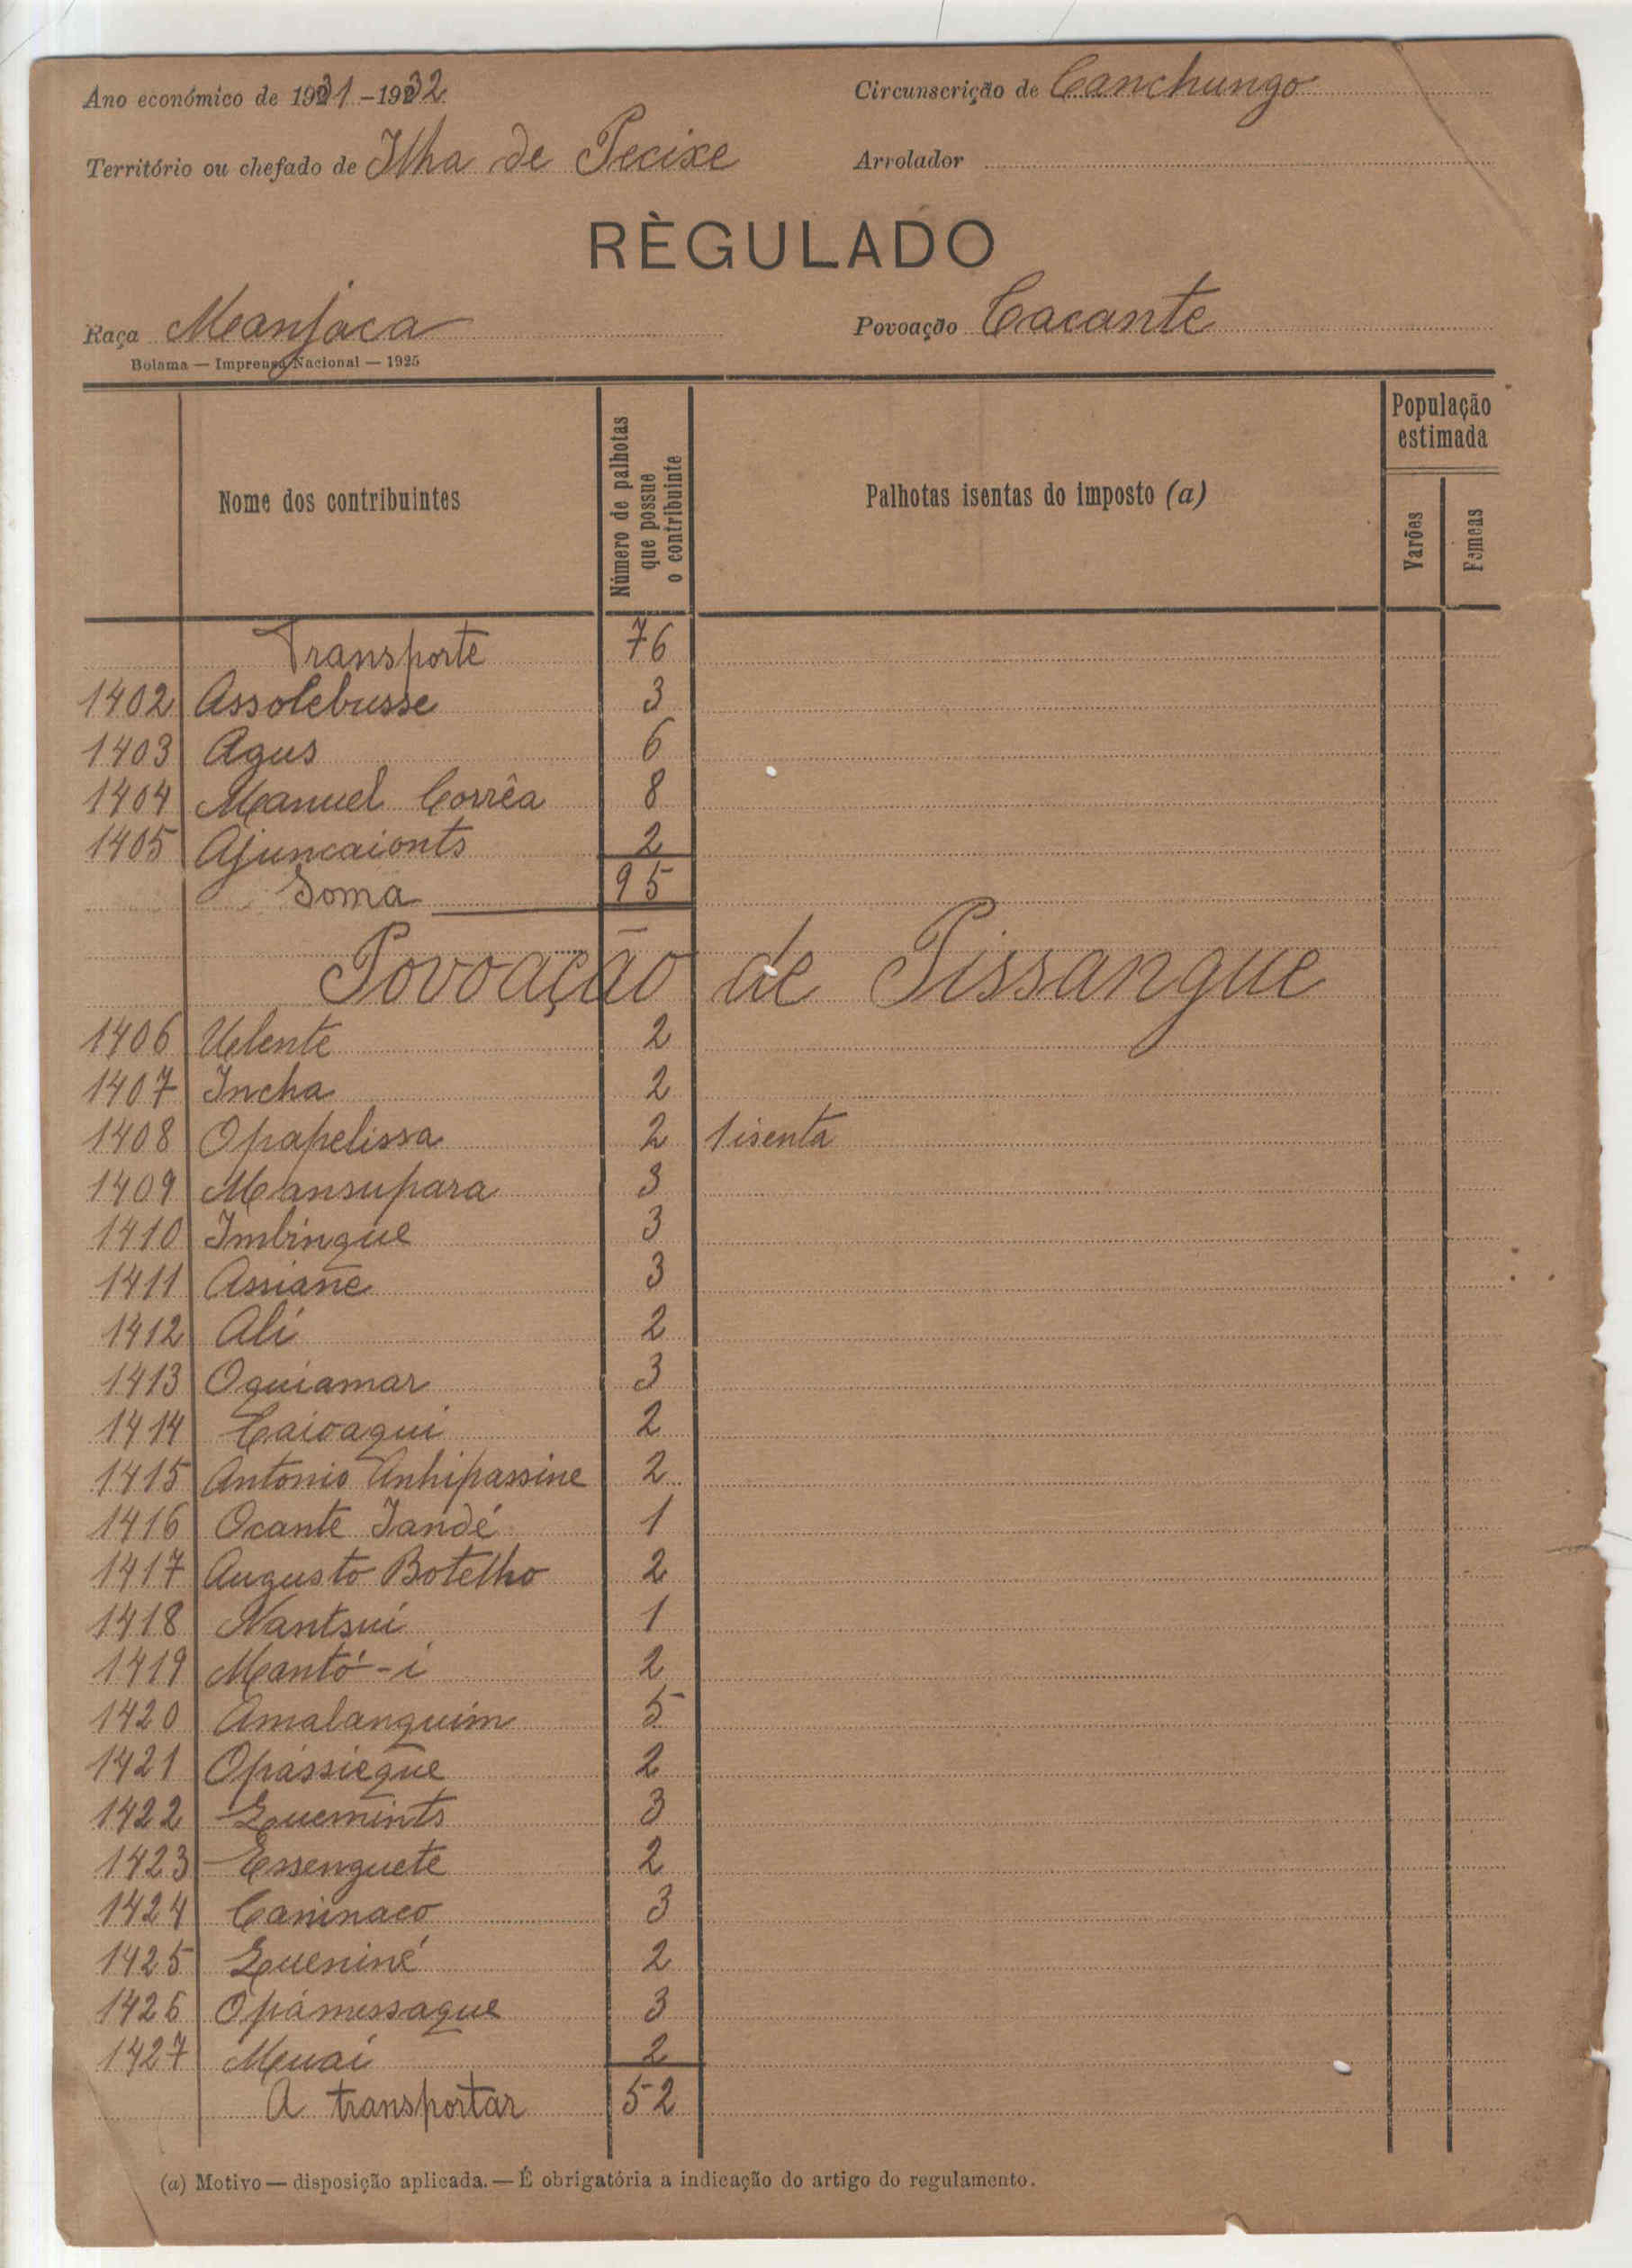 Ano económico de 1931-1932
Circunscrição de Canchungo
Território ou chefado de Ilha de Pecixe
Arrolador
RÈGULADO
Raça Manjaca
Povoação Cacante
Bolama — Imprensa Nacional — 1925
Nome dos contribuintes
Número de palhotas que possue o contribuinte
Palhotas isentas do imposto (a)
População estimada
Varões
Femeas
Transporte 76
1402 Assolebusse 3
1403 Agus 6
1404 Manuel Corrêa 8
1405 Ajuncaionts 2
Soma 95
Povoação de Pissangue
1406 Uelente 2
1407 Incha 2
1408 Opapelissa 2 1 isenta
1409 Mansupara 3
1410 Imbingue 3
1411 Assiane 3
1412 Ali 2
1413 Oquiamar 3
1414 Caioaqui 2
1415 Antonio Unhipassine 2
1416 Ocante Jandé 1
1417 Augusto Botelho 2
1418 Nantsui 1
1419 Mantó-i 2
1420 Amalanquim 5
1421 Opássieque 2
1422 Quemints 3
1423 Essenguete 2
1424 Caninaco 3
1425 Queniné 2
1426 Opámessaque 3
1427 Meuai 2
A transportar 52
(a) Motivo — disposição aplicada. — É obrigatória a indicação do artigo do regulamento.